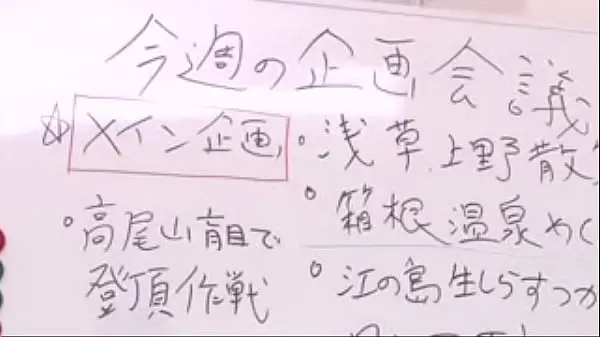 今週の企画会議
☆メイン企画
・高尾山盲目で
登頂作戦
・浅草、上野散
・箱根温泉めぐ
・江の島生しらすつか